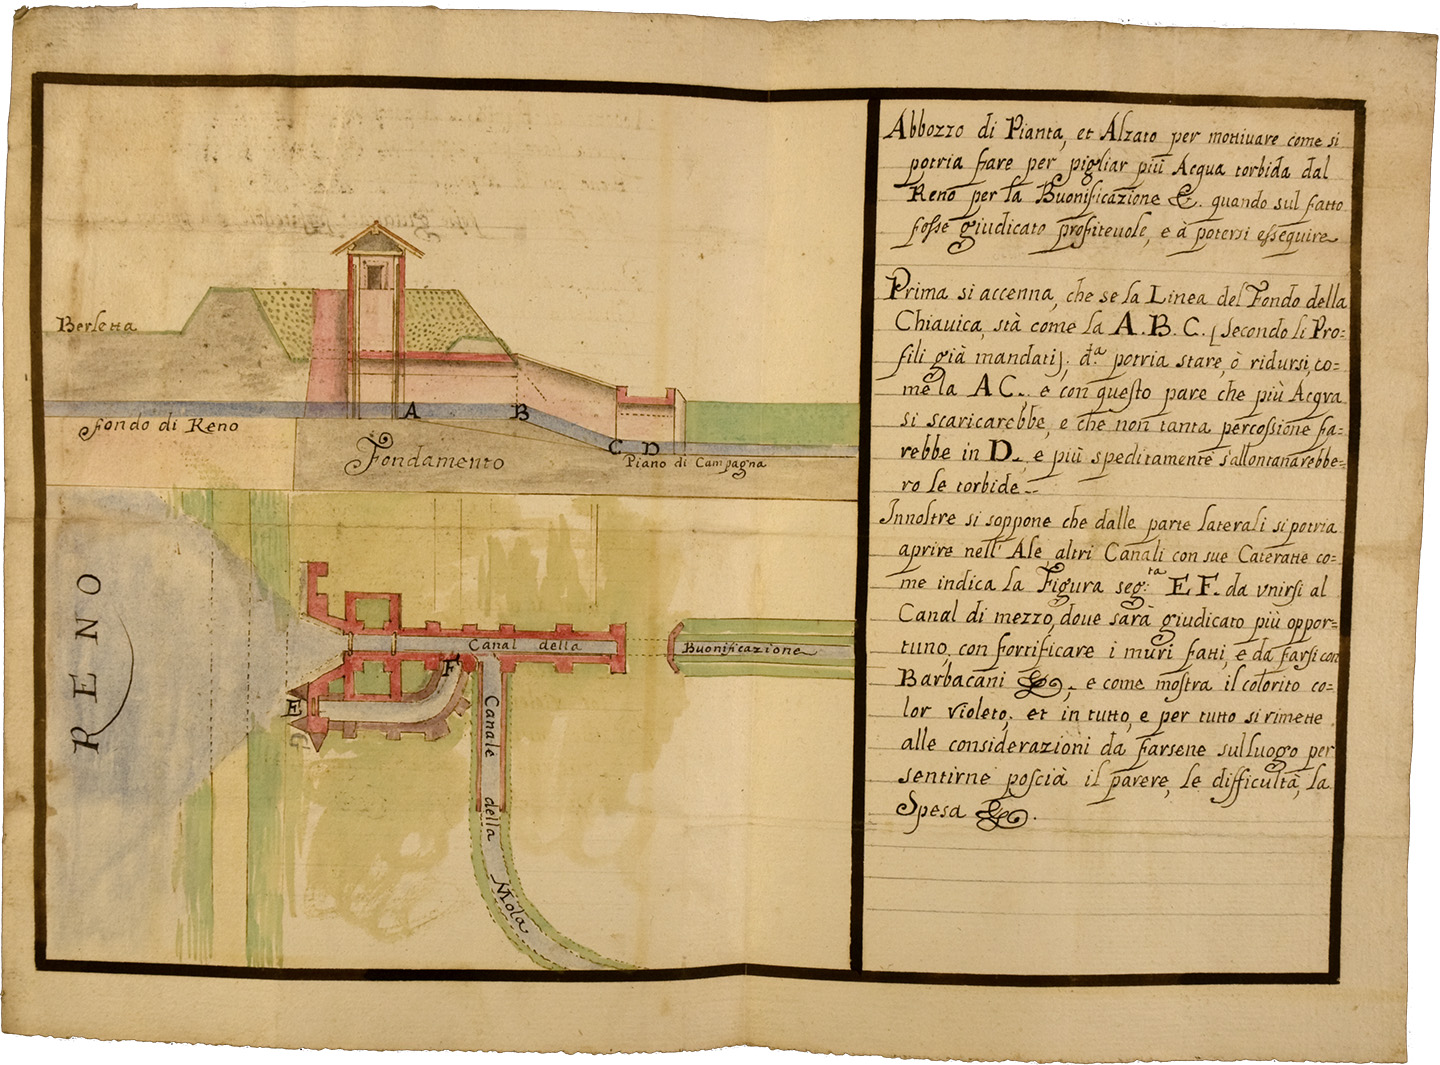 Berletta
fondo di Reno
A
B
C D
Fondamento
Piano di Campagna
RENO
Canal della
Buonificazione
F
E
G
Canale
della
Mola
Abbozzo di Pianta, et Alzato per mottiuare come si
potria fare per pigliar più Acqua torbida dal
Reno per la Buonificazione &. quando sul fatto
fosse giudicato profiteuole, e à potersi essequire
Prima si accenna, che se la Linea del Fondo della
Chiauica, stà come la A.B.C. (secondo li Pro=
fili già mandati); d.ª potria stare, ò ridursi, co=
me la AC., e con questo pare che più Acqva
si scaricarebbe, e che non tanta percossione fa=
rebbe in D., e più speditamente s'allontanarebbe=
ro le torbide.
Innoltre si soppone che dalle parte laterali si potria
aprire nell' Ale altri Canali con sue Cateratte co=
me indica la Figura seg:ta EF. da vnirsi al
Canal di mezzo, doue sarà giudicato più oppor=
tuno, con fortificare i muri fatti, e da farsi con
Barbacani &, e come mostra il colorito co=
lor violeto; et in tutto, e per tutto si rimette
alle considerazioni da farsene sul luogo per
sentirne poscià il parere, le difficultà, la
Spesa &.